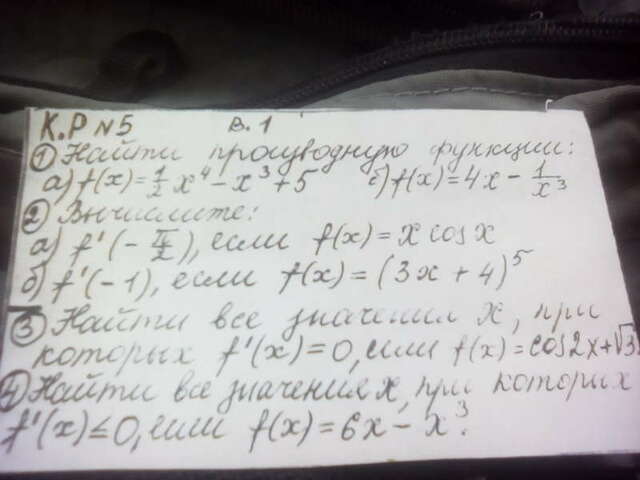 К.Р №5 В.1
① Найти производную функции:
а) f(x)=1/2 x⁴ - x³ + 5 б) f(x)=4x - 1/x³
② Вычислите:
а) f'(-π/2), если f(x)= x cos x
б) f'(-1), если f(x)=(3x + 4)⁵
③ Найти все значения x, при
которых f'(x)=0, если f(x)=cos2x+√3
④ Найти все значения x, при которых
f'(x)≤0, если f(x)=6x - x³.